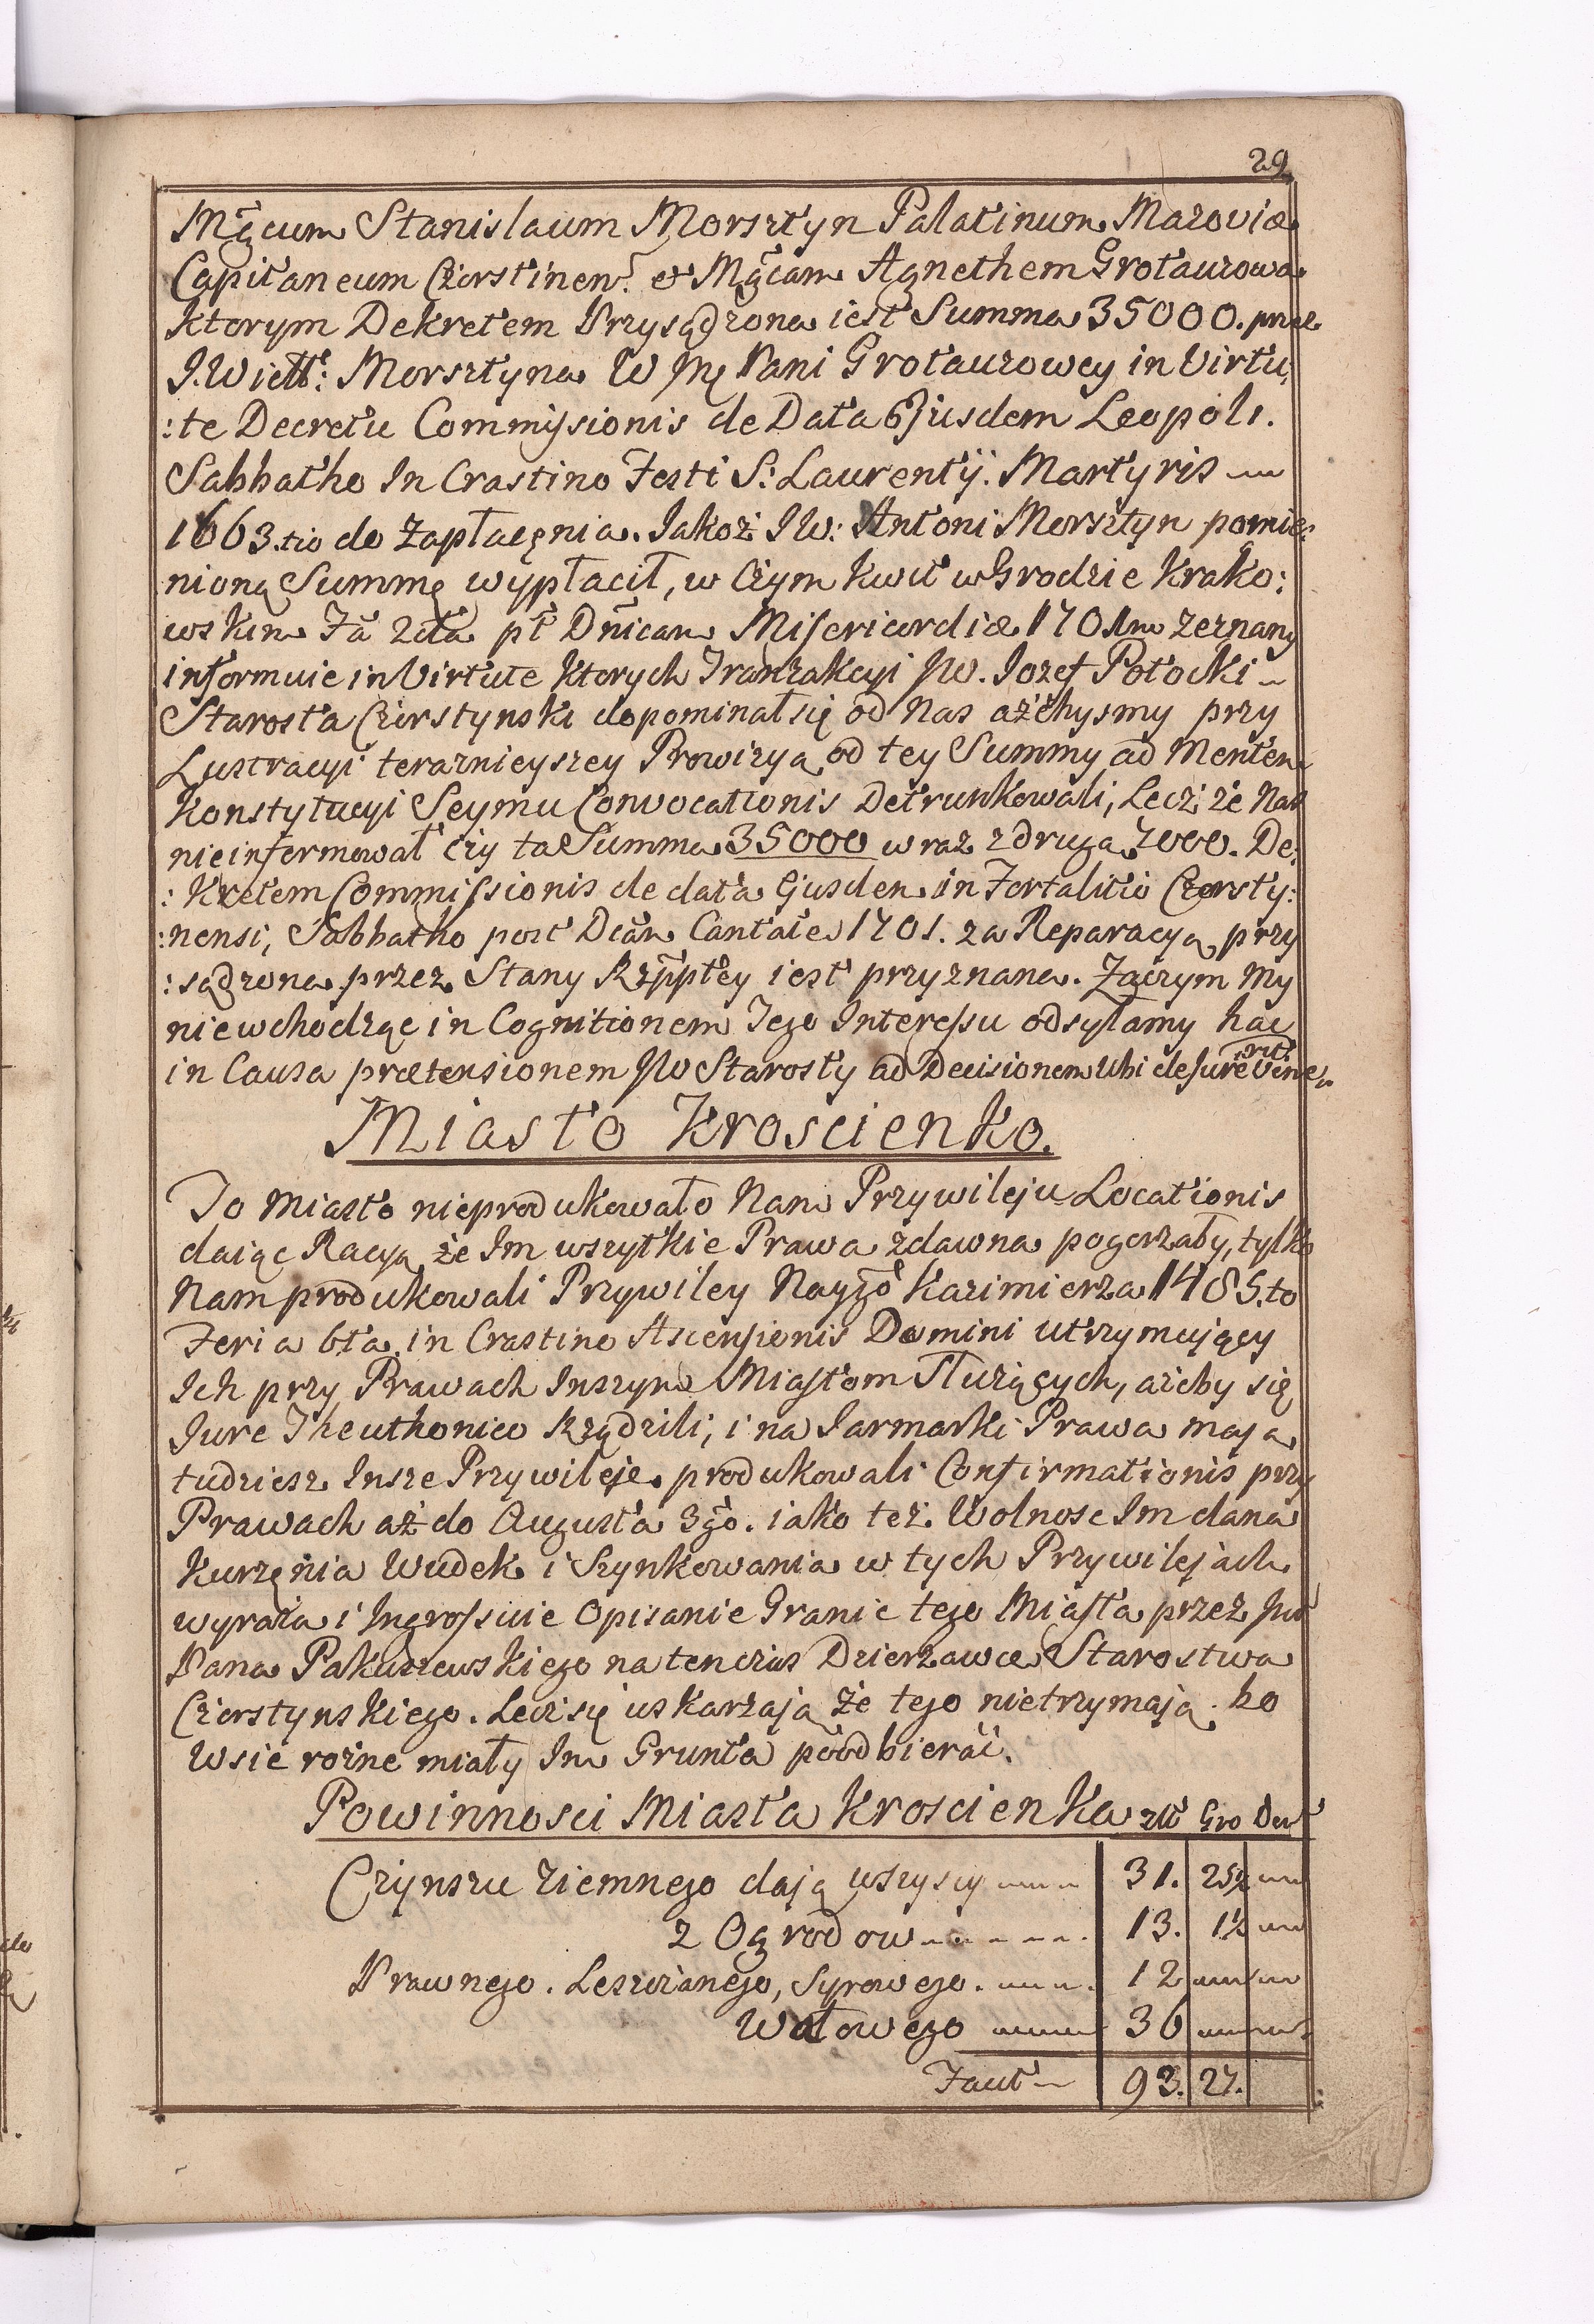 29
Mg̃cum Stanislaum Morsztyn Palatinum Mazoviæ
Capitaneum Czorstinen: et Mg̃cam Agnethem Grotauzowa
ktorym Dekretem Przysądzona iest Summa 35000. przez
J. Wiett: Morsztyna W Jmę Pani Grotauzowey in Virtu:
:te Decretu Commissionis de Data Ejusdem Leopoli.
Sabbatho In Crastino Festi S: Laurentij. Martyris
1663.tio do Zapłacęnia. Jakoż JW: Antoni Morsztyn pomie:
nioną Summę wypłacił, w Czym kwit w Grodzie Krako:
wskim Fã 2da pt Dñicam Misericordiæ 1701mo zeznany
informuie in Virtute ktorych Tranzakcyi JW. Jozef Potocki
Starosta Czorstynski dopominał się od Nas ażebysmy przy
Lustracyi teraznieyszey Prowizyą od tey Summy ad Mentem
Konstytucyi Seymu Convocationis Detrunkowali, Lecz że Nas
nieinformował czy ta Summa 35000 wraz z drugą 7000. De:
:kretem Commissionis de data Ejusdem in Fortalitio Czorsty:
:nensi, Sabbatho post Dcãm Cantate 1701. za Reparacyą przy
:sądzona przez Stany Rzppltey iest przyznana. Zaczym My
niewchodząc in Cognitionem Tego Interessu odsyłamy hac
in Causa prætensionem JW Starosty ad Decisionem Ubi de Jure Vene:
rit.
Miasto Kroscienko.
To Miasto nieprodukowało Nam Przywileju Locationis
daiąc Racyą że Im wszytkie Prawa zdawna pogorzały, tylko
Nam produkowali Przywiley Nayjo Kazimierza 1485.to
Feria 6ta in Crastino Ascensionis Domini utrzymujący
Ich przy Prawach Inszym Miastom służących, ażeby się
Jure Theuthonico Rządzili, i na Jarmarki Prawa mają
tudziesz Insze Przywileje produkowali Confirmationis przy
Prawach aż do Augusta 3go. iako też Wolnosc Im dana
Kurzęnia Wudek i Szynkowania w tych Przywilejach
wyraża i Ingrossuie Opisanie Granic tego Miasta przez JW
Pana Pakuszewskiego na tenczas Dzierzawce Starostwa
Czorstynskiego. Lecz się uskarzają że tego nietrzymają. bo
Wsie rożne miały Im Grunta poodbierać.
Powinnosci Miasta Kroscienka złł Gro Den
Czynszu Ziemnego dają wszyscy 31. 25½
z Ogrodow 13. 1½
Prawnego. Leszczanego, Syrowego. 12
Wołowego 36
Facit 93. 27.